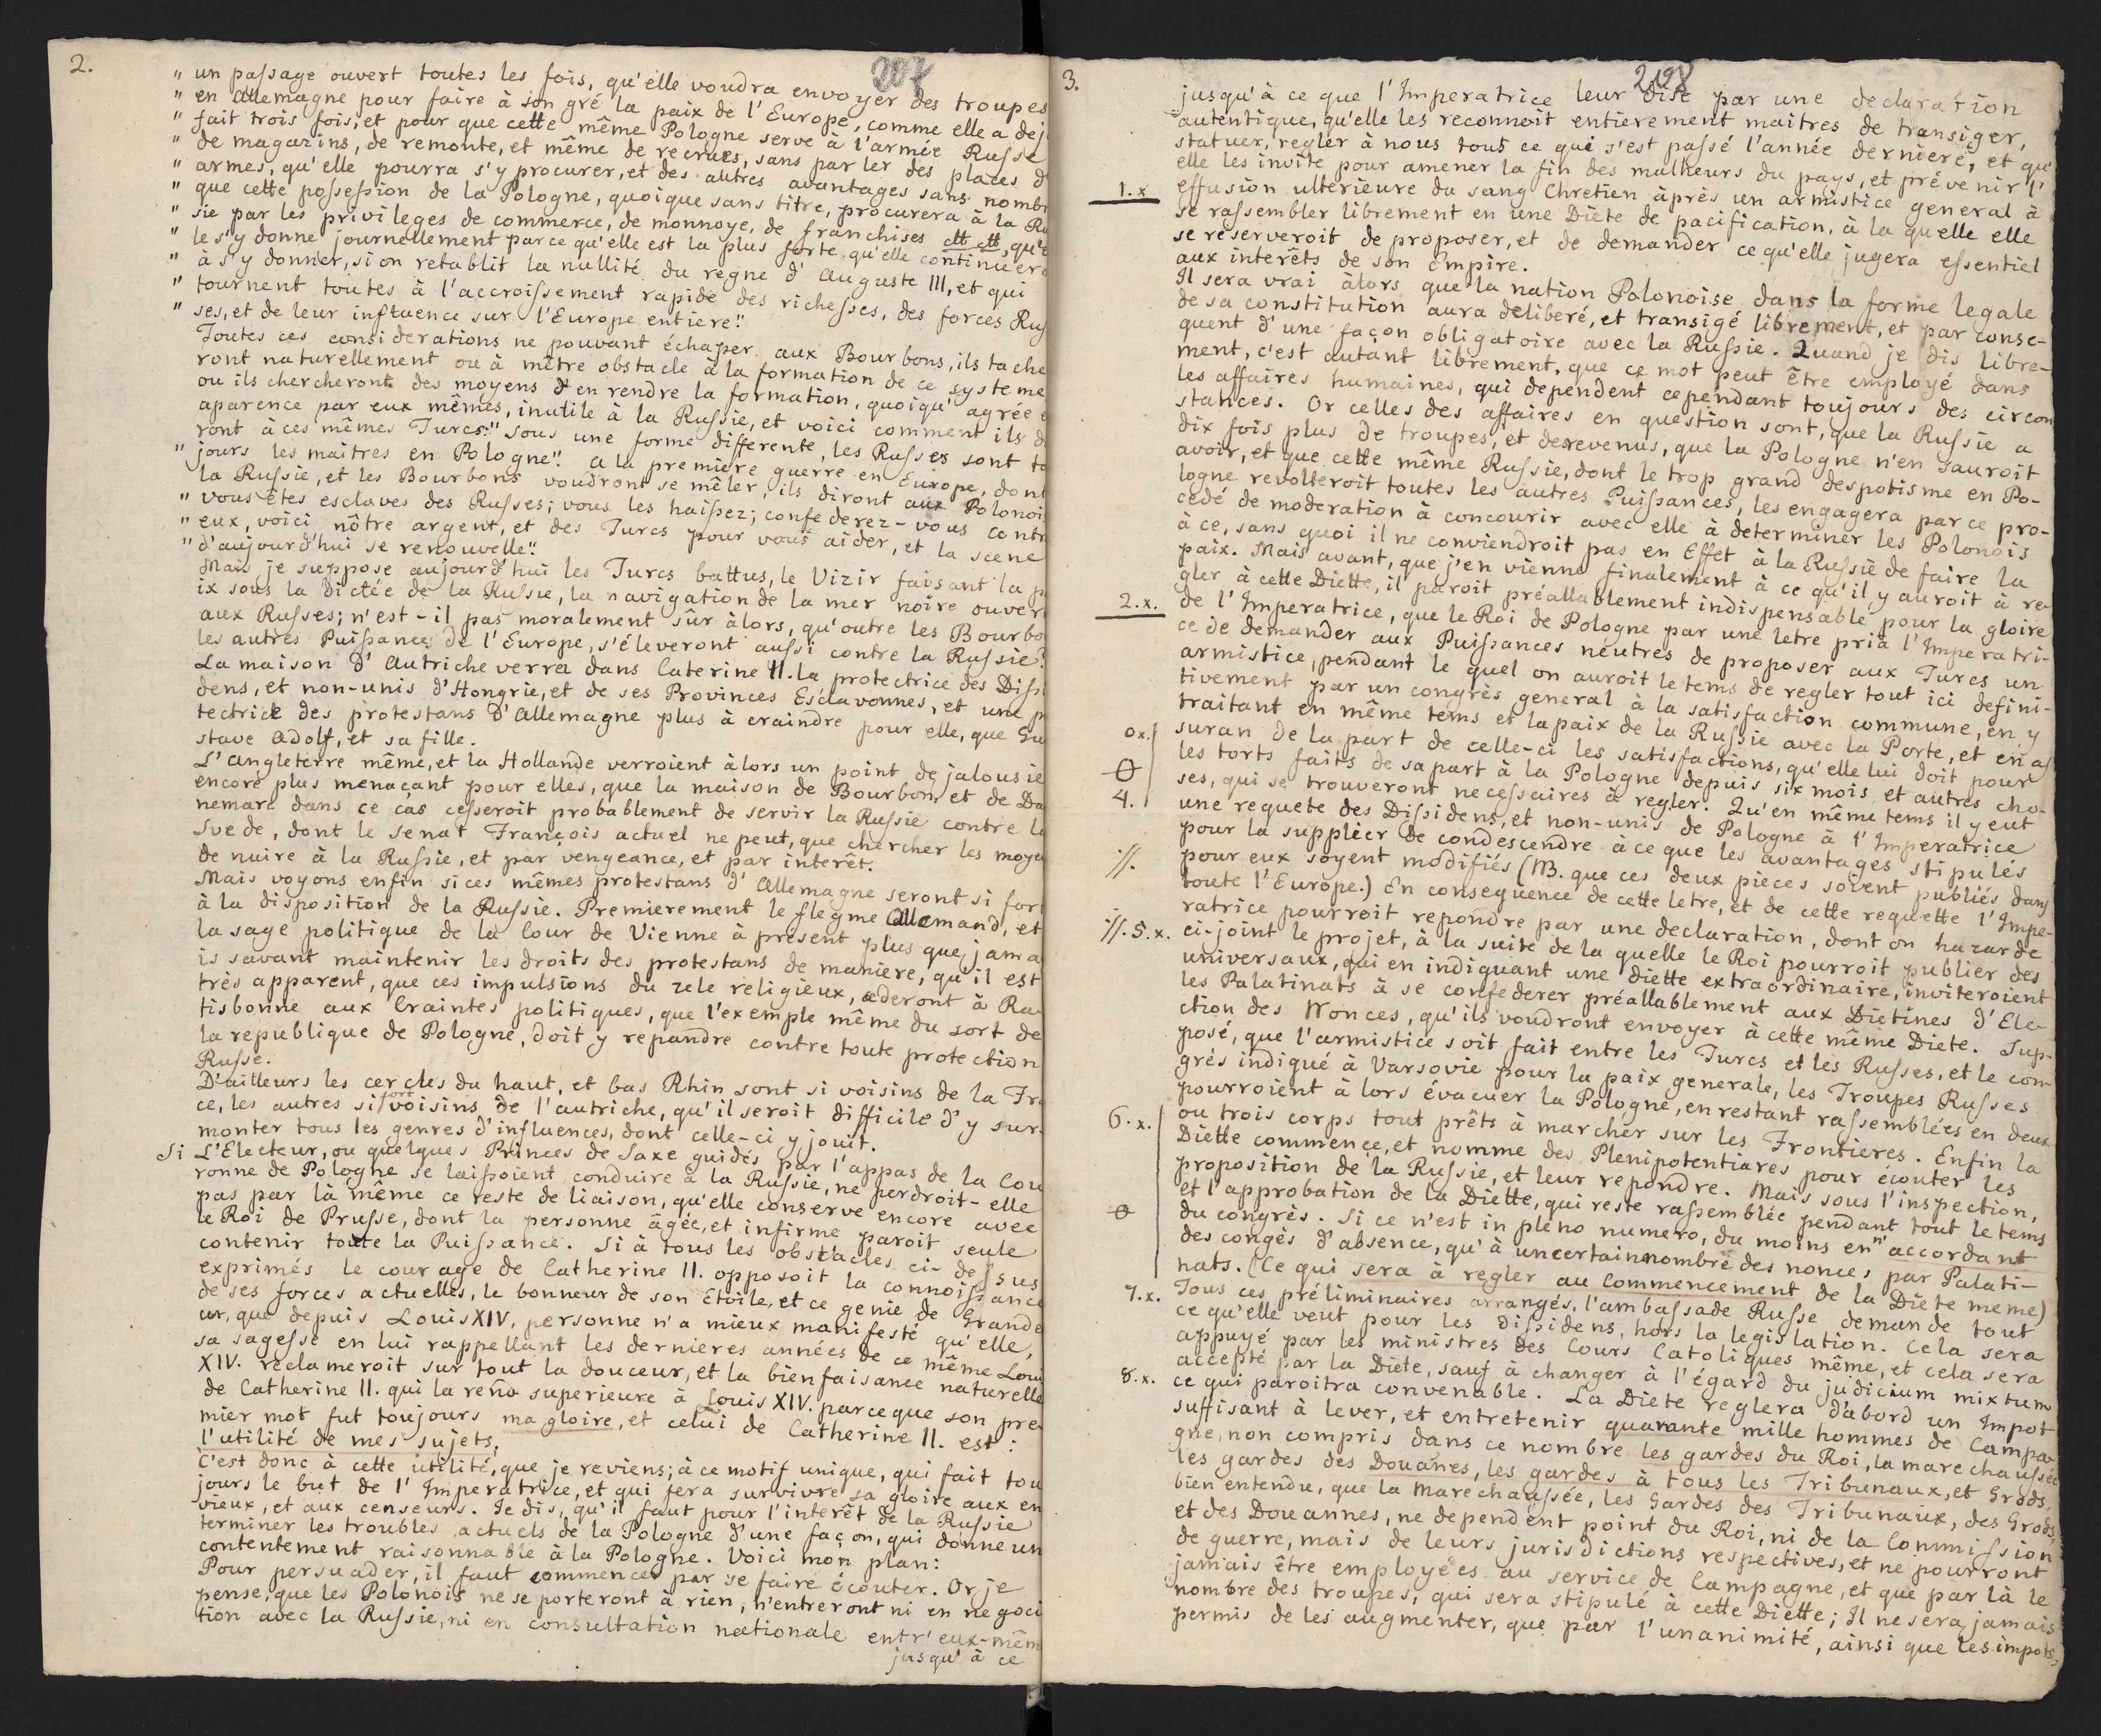 2.
207
" un passage ouvert toutes les fois, qu'elle voudra envoyer des troupes
" en Allemagne pour faire à son gré la paix de l'Europe, comme elle a dej
" fait trois fois, et pour que cette même Pologne serve à l'armée Russe
" de magazins, de remonte, et même de recrues, sans parler des places d'
" armes, qu'elle pourra s'y procurer, et des autres avantages sans nomb
" que cette possession de la Pologne, quoique sans titre, procurera à la Ru
" sie par les privileges de commerce, de monnoye, de franchises ett ett, qu'e
" le s'y donne journellement parce qu'elle est la plus forte, qu'elle continuera
" à s'y donner, si on retablit la nullité du regne d'Auguste III, et qui
" tournent toutes à l'accroissement rapide des richesses, des forces Rus
" ses, et de leur influence sur l'Europe entiere"
Toutes ces considerations ne pouvant échaper aux Bourbons, ils tache
ront naturellement ou à mêtre obstacle à la formation de ce systeme
ou ils chercheront des moyens d'en rendre la formation, quoiqu'agrée e
aparence par eux mêmes, inutile à la Russie, et voici comment ils d
ront à ces mêmes Turcs:" sous une forme differente, les Russes sont to
" jours les maitres en Pologne" A la premiere guerre en Europe, dont
la Russie, et les Bourbons voudront se mêler, ils diront aux Polonois
" vous êtes esclaves des Russes; vous les haissez; confederez-vous contr
" eux, voici nôtre argent, et des Turcs pour vous aider, et la scene
" d'aujourd'hui se renouvelle"
Mais je suppose aujourd'hui les Turcs battus, le Vizir faisant la p
ix sous la dictée de la Russie, la navigation de la mer noire ouver
aux Russes; n'est-il pas moralement sûr àlors, qu'outre les Bourbo
les autres Puissances de l'Europe, s'éleveront aussi contre la Russie?
La maison d'Autriche verra dans Caterine II. la protectrice des Dissi
dens, et non-unis d'Hongrie, et de ses Provinces Esclavonnes, et une p
tectrice des protestans d'Allemagne plus à craindre pour elle, que Gu
stave Adolf, et sa fille.
L'Angleterre même, et la Hollande verroient àlors un point de jalousie
encore plus menaçant pour elles, que la maison de Bourbon, et de Da
nemarc dans ce cas cesseroit probablement de servir la Russie contre la
Svede, dont le senat François actuel ne peut, que chercher les moye
de nuire à la Russie, et par vengeance, et par interêt.
Mais voyons enfin si ces mêmes protestans d'Allemagne seront si for
à la disposition de la Russie. Premierement le flegme Allemand, et
la sage politique de la Cour de Vienne à present plus que jama
is savant maintenir les droits des protestans de maniere, qu'il est
très apparent, que ces impulsions du zele religieux, cederont à Ra
tisbonne aux Craintes politiques, que l'exemple même du sort de
la republique de Pologne, doit y repandre contre toute protection
Russe.
D'ailleurs les cercles du haut, et bas Rhin sont si voisins de la Fra
ce, les autres si fort voisins de l'autriche, qu'il seroit difficile d'y sur-
monter tous les genres d'influences, dont celle-ci y jouit.
Si L'Electeur, ou quelques Princes de Saxe guidés par l'appas de la Cou
ronne de Pologne se laissoient conduire à la Russie, ne perdroit-elle
pas par là même ce reste de liaison, qu'elle conserve encore avec
le Roi de Prusse, dont la personne âgée, et infirme paroit seule
contenir toute la Puissance. Si à tous les obstacles ci-dessus
exprimés le courage de Catherine II. opposoit la connoissance
de ses forces actuelles, le bonneur de son Étoile, et ce genie de Grande
ur, que depuis Louis XIV, personne n'a mieux manifesté qu'elle,
sa sagesse en lui rappellant les dernieres années de ce même Loui
XIV. reclameroit sur tout la douceur, et la bienfaisance naturelle
de Catherine II. qui la rend superieure à Louis XIV. parceque son pre
mier mot fut toujours ma gloire, et celui de Catherine II. est:
l'utilité de mes sujets.
C'est donc à cette utilité, que je reviens; à ce motif unique, qui fait tou
jours le but de l'Imperatrice, et qui fera survivre sa gloire aux en
vieux, et aux censeurs. Je dis, qu'il faut pour l'interêt de la Russie
terminer les troubles actuels de la Pologne d'une façon, qui donne un
contentement raisonnable à la Pologne. Voici mon plan:
Pour persuader, il faut commencer par se faire écouter. Or je
pense, que les Polonois ne se porteront à rien, n'entreront ni en negoci
tion avec la Russie, ni en consultation nationale entr'eux-mêm
jusqu'à ce
3.
jusqu'à ce que l'Imperatrice leur dise par une declaration
autentique, qu'elle les reconnoit entierement maitres de transiger,
statuer, regler à nous tout ce qui s'est passé l'année derniere, et qu'
elle les invite pour amener la fin des malheurs du pays, et prévenir l'
1.x effusion ulterieure du sang Chretien après un armistice general à
se rassembler librement en une Diète de pacification, à la quelle elle
se reserveroit de proposer, et de demander ce qu'elle jugera essentiel
aux interêts de son Empire.
Il sera vrai àlors que la nation Polonoise dans la forme legale
de sa constitution aura deliberé, et transigé librement, et par conse-
quent d'une façon obligatoire avec la Russie. Quand je dis libre-
ment, c'est autant librement, que ce mot peut être employé dans
les affaires humaines, qui dependent cependant toujours des circon
stances. Or celles des affaires en question sont, que la Russie a
dix fois plus de troupes, et de revenus, que la Pologne n'en sauroit
avoir, et que cette même Russie, dont le trop grand despotisme en Po-
logne revolteroit toutes les autres Puissances, les engagera par ce pro-
cedé de moderation à concourir avec elle à determiner les Polonois
à ce, sans quoi il ne conviendroit pas en Effet à la Russie de faire la
paix. Mais avant, que j'en vienne finalement à ce qu'il y auroit à re-
gler à cette Diette, il paroit préallablement indispensable pour la gloire
2.x. de l'Imperatrice, que le Roi de Pologne par une letre pria l'Imperatri-
ce de demander aux Puissances neutres de proposer aux Turcs un
armistice, pendant le quel on auroit le tems de regler tout ici defini-
tivement par un congrès general à la satisfaction commune, en y
traitant en même tems et la paix de la Russie avec la Porte, et en as
0x. suran de la part de celle-ci les satisfactions, qu'elle lui doit pour
les torts faits de sa part à la Pologne depuis six mois et autres cho-
0 ses, qui se trouveront necessaires à regler. Qu'en même tems il y eut
4. une requete des Dissidens, et non-unis de Pologne à l'Imperatrice
pour la supplier de condescendre à ce que les avantages stipulés
://. pour eux soyent modifiés (NB. que ces deux pieces soient publiés dans
toute l'Europe.) En consequence de cette letre, et de cette requette l'Impe-
ratrice pourroit repondre par une declaration, dont on hazarde
://. 5.x. ci-joint le projet, à la suite de la quelle le Roi pourroit publier des
universaux, qui en indiquant une diette extraordinaire, inviteroient
les Palatinats à se confederer préallablement aux Dietines d'Ele-
ction des Nonces, qu'ils voudront envoyer à cette même Diete. Sup-
posé, que l'armistice soit fait entre les Turcs et les Russes, et le con-
grés indiqué à Varsovie pour la paix generale, les Troupes Russes
pourroient à lors évacuer la Pologne, en restant rassemblées en deux
6.x. ou trois corps tout prêts à marcher sur les Frontieres. Enfin la
Diette commence, et nomme des Plenipotentiares pour écouter les
proposition de la Russie, et leur repondre. Mais sous l'inspection,
et l'approbation de la Diette, qui reste rassemblée pendant tout le tems
0 du congrès. Si ce n'est in pleno numero, du moins en n'accordant
des congés d'absence, qu'à un certain nombre des nonces par Palati-
nats. (Ce qui sera à regler au Commencement de la Diète meme)
7.x. Tous ces préliminaires arrangés, l'ambassade Russe demande tout
ce qu'elle veut pour les Dissidens, hors la legislation. Cela sera
appuyé par les ministres des Cours Catoliques même, et cela sera
accepté par la Diete, sauf à changer à l'égard du judicium mixtum
8.x. ce qui paroitra convenable. La Diete reglera d'abord un Impot
suffisant à lever, et entretenir quarante mille hommes de Campa-
gne, non compris dans ce nombre les gardes du Roi, la marechaussée
les gardes des Douanes, les gardes à tous les Tribunaux, et Grods,
bien entendu, que la Marechaussée, les Gardes des Tribunaux, des Grods,
et des Douannes, ne dependent point du Roi, ni de la Commission
de guerre, mais de leurs jurisdictions respectives, et ne pourront
jamais être employées au service de Campagne, et que par là le
nombre des troupes, qui sera stipulé à cette Diette; Il ne sera jamais
permis de les augmenter, que par l'unanimité, ainsi que les impots,